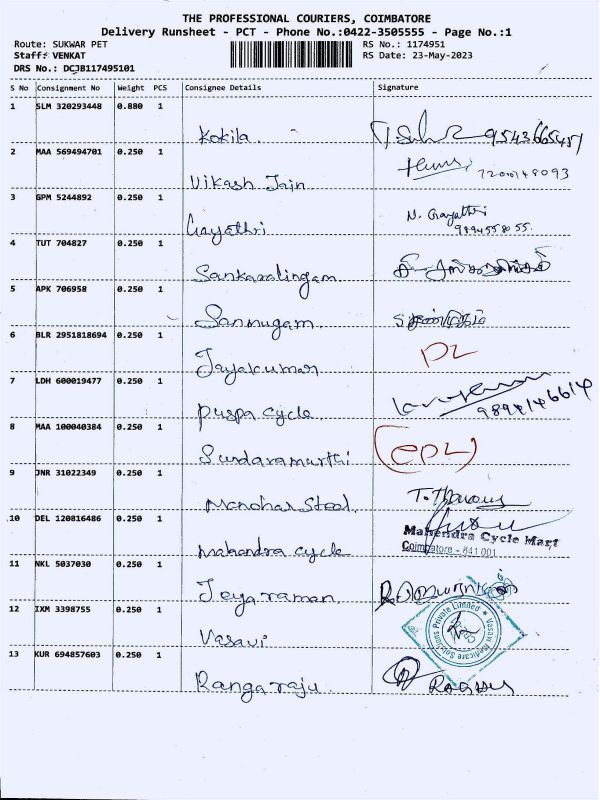 THE PROFESSIONAL COURIERS, COIMBATORE
Delivery Runsheet - PCT - Phone No.:0422-3505555 - Page No.:1
Route: SUKWAR PET RS No.: 1174951
Staff: VENKAT RS Date: 23-May-2023
DRS No.: DCJB117495101
S No Consignment No Weight PCS Consignee Details Signature
1 SLM 320293448 0.880 1
Kokila.
2 MAA 569494701 0.250 1
Vikash Jain
3 GPM 5244892 0.250 1
Gayathri N. Gayathri
9894558055.
4 TUT 704827 0.250 1
Sankaralingam
5 APK 706958 0.250 1
Sannugam
6 BLR 2951818694 0.250 1
Jayakumar DL
7 LDH 600019477 0.250 1
Puspa cycle 9894146614
8 MAA 100040384 0.250 1
Sundaramurthi
9 JNR 31022349 0.250 1
Manohar Steel
10 DEL 120816486 0.250 1
Mahendra Cycle Mart
Coimbatore - 641 001
Mahandra cycle
11 NKL 5037030 0.250 1
Jeyaraman
12 IXM 3398755 0.250 1
Vasavi Vasavi Medicare Solutions Private Limited
13 KUR 694857603 0.250 1
Rangaraju